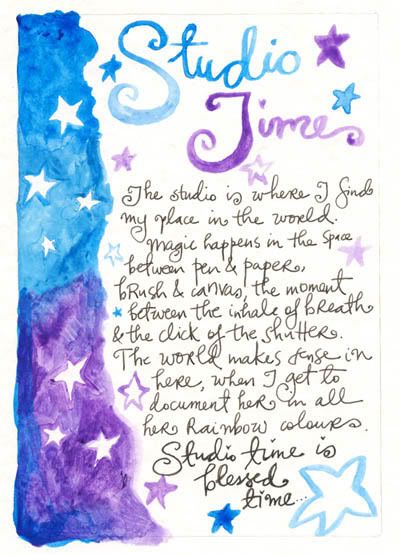 Studio
Time
The studio is where I find
my place in the world.
Magic happens in the space
between pen & paper,
brush & canvas, the moment
between the inhale of breath
& the click of the shutter.
The world makes sense in
here, when I get to
document her in all
her rainbow colours.
Studio time is
blessed
time...